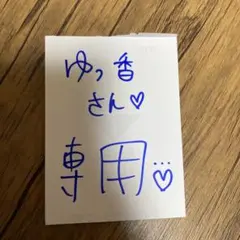 ゆっ香
さん♡
専用…♡